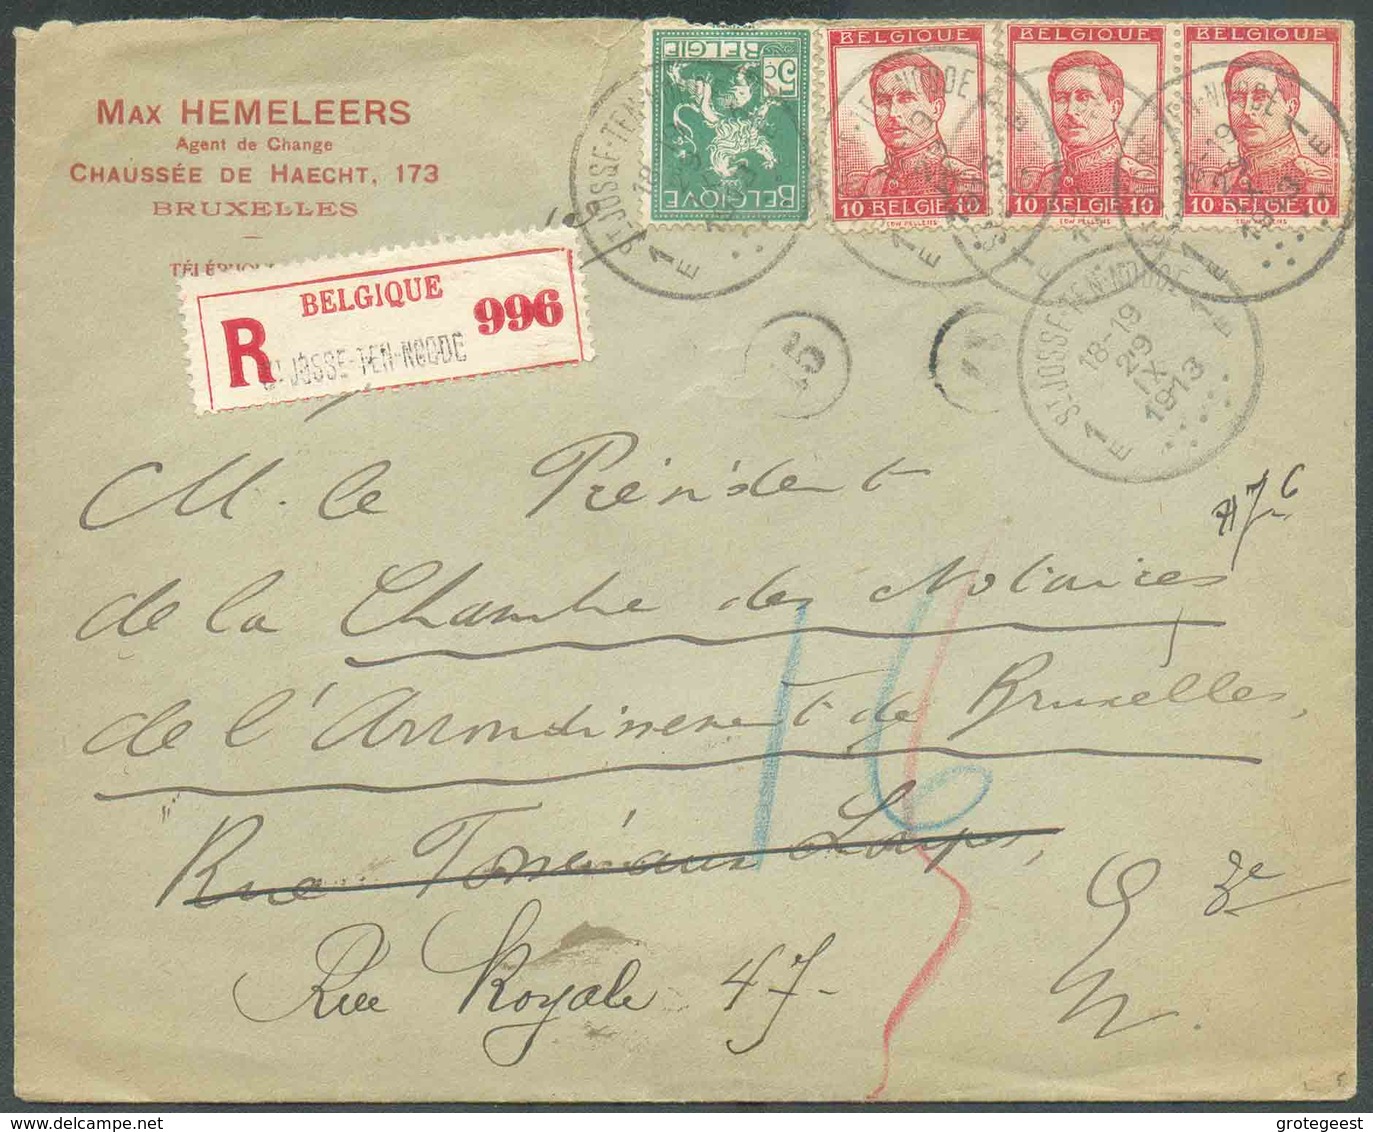 MAX HEMELEERS
Agent de Change
CHAUSSÉE DE HAECHT, 173
BRUXELLES
BELGIQUE
R
996
ST JOSSE-TEN-NOODE
BELGIE
5c
BELGIQUE
BELGIQUE
10 BELGIE 10
BELGIQUE
10 BELGIE 10
BELGIQUE
10 BELGIE 10
ST JOSSE-TEN-NOODE 1
18-19
29
IX
1913
1 E
15
M. le Président
de la Chambre des Notaires
de l'Arrondissement de Bruxelles,
Rue
Rue Royale 47-
16
grotegeest